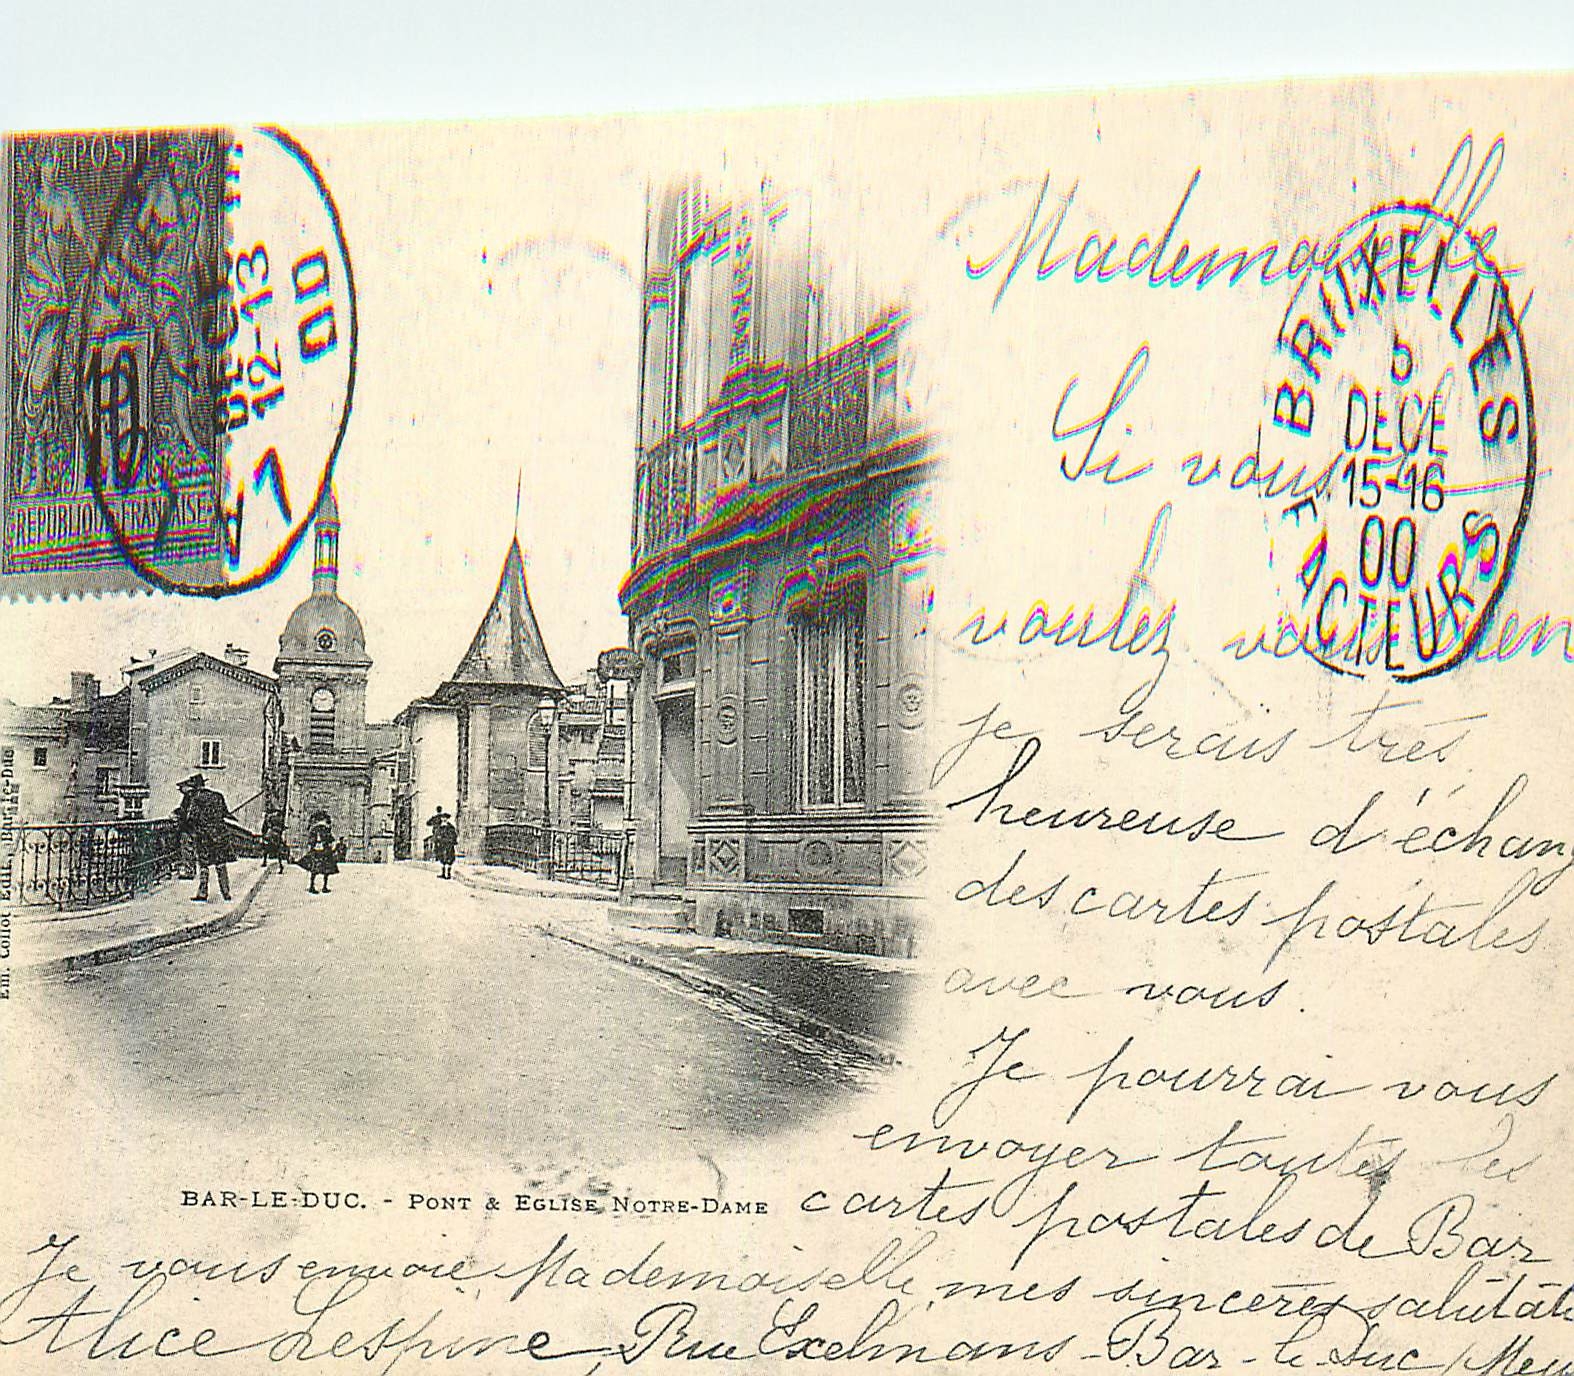 POSTE
REPUBLIQUE FRANÇAISE
12-13
00
BRUXELLES
5
DECE
15-16
00
FACTEURS
Mademoiselle
Si vous
voulez vous
je serais très
heureuse d'échang
des cartes postales
avec vous.
Je pourrai vous
envoyer toutes les
cartes postales de Bar
Em. Collot Edit., Bar-le-Duc
BAR-LE-DUC. - PONT & EGLISE NOTRE-DAME
Je vous envoie Mademoiselle, mes sincères salutat
Alice Lespine, Rue Exelmans - Bar-le-Duc (Meu